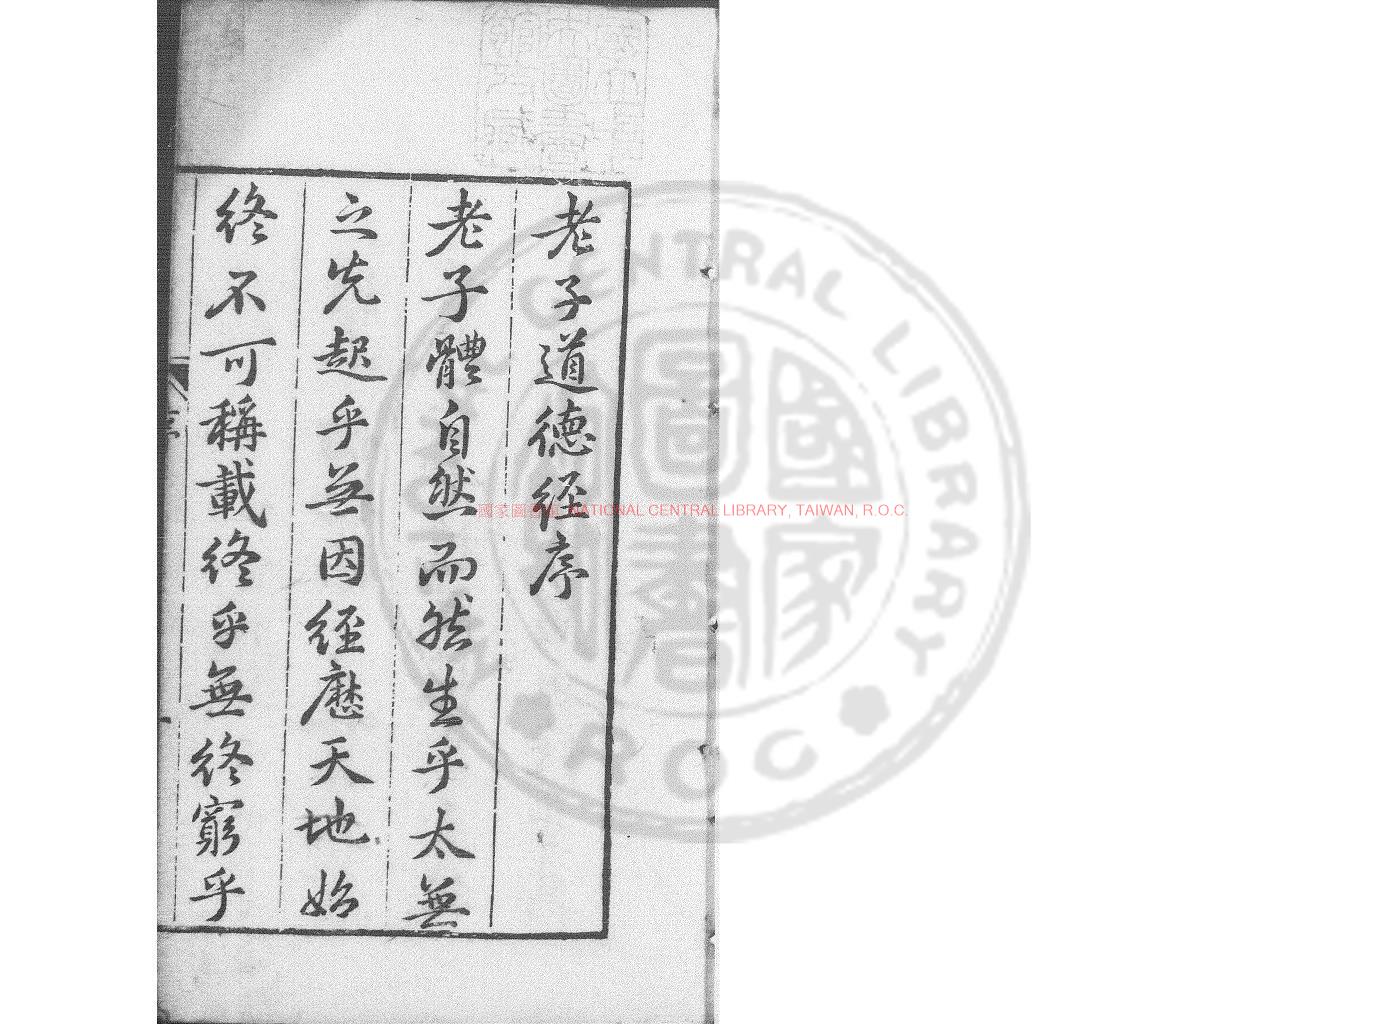 老子道德经序
老子體自然而然生乎太無
之先起乎无因経歷天地始
終不可稱載終乎無終窮乎
序
國家圖書館 NATIONAL CENTRAL LIBRARY, TAIWAN, R.O.C.
CENTRAL LIBRARY
國家圖書
ROC